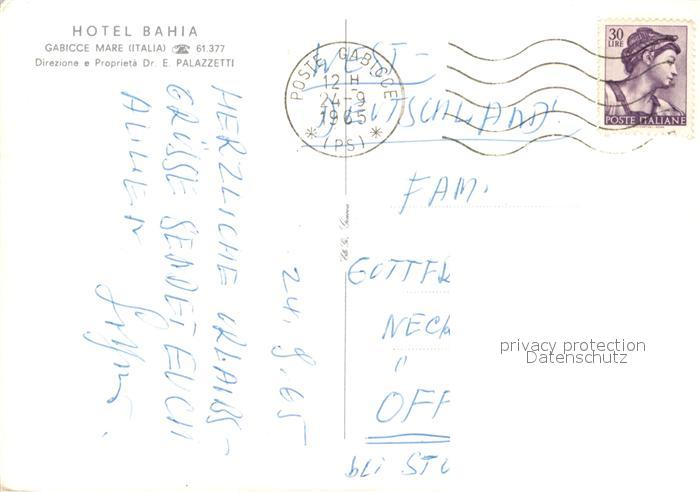 HOTEL BAHIA
GABICCE MARE (ITALIA) ☎ 61.377
Direzione e Proprietà Dr. E. PALAZZETTI
24.9.65
HERZLICHE URLAUBS
GRÜSSE SENDET EUCH
ALLEN
POSTE GABICCE
12 H
24-9
1965
* (PS) *
30
LIRE
POSTE ITALIANE
WEST-
DEUTSCHLAND!
FAM.
GOTTF
NECK
"
OFF
bei STU
privacy protection
Datenschutz